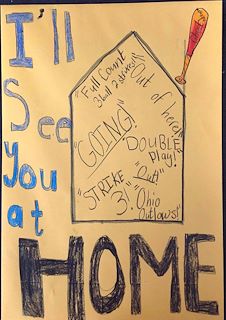 I'll
See
You
at
HOME
"Full Count
3 ball 2 strikes!"
"Out of here!"
"GOING!"
"DOUBLE
Play!"
"Out!"
"STRIKE
3!"
"Ohio
Outlaws!"